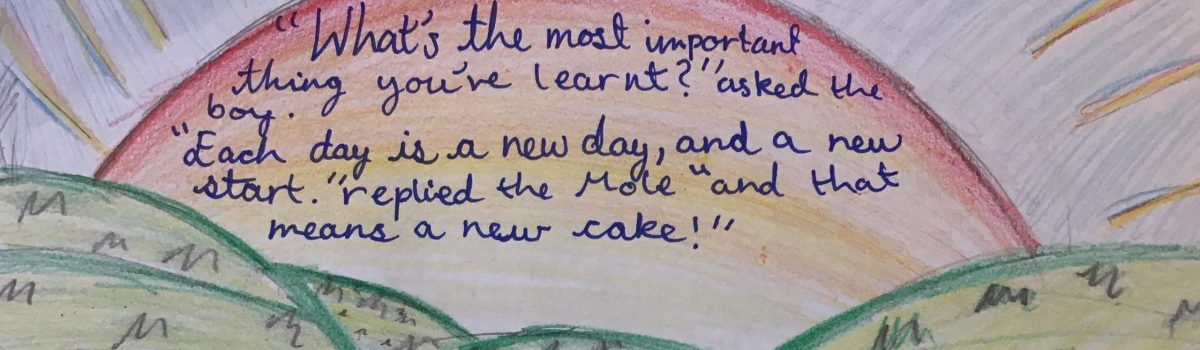 "What's the most important
thing you've learnt?" asked the
boy.
"Each day is a new day, and a new
start." replied the Mole "and that
means a new cake!"